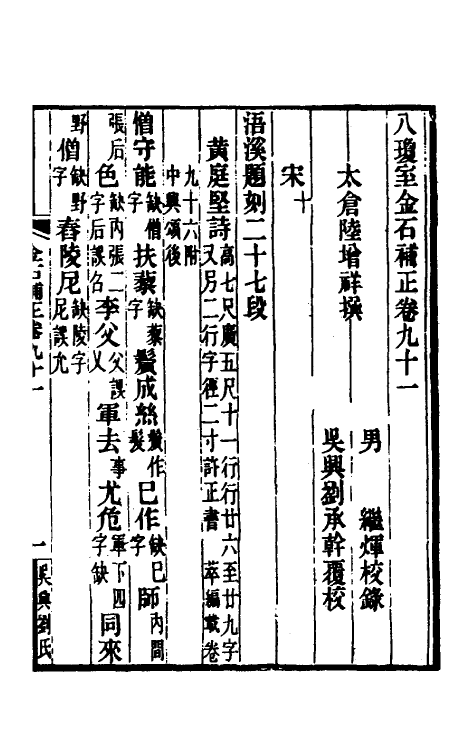 八瓊室金石補正卷九十一
男　繼煇校錄
太倉陸增祥撰
吳興劉承幹覆校
宋十
浯溪題刻二十七段
黃庭堅詩高七尺廣五尺十一行行廿六至廿九字又另二行字徑二寸許正書　萃編載卷
九十六附中興頌後
僧守能缺僧字扶藜缺藜字鬢成絲鬢作髮巳作缺巳字師內間
張后色缺內張二字后誤名李父父誤乂軍去事尤危軍下四字缺同來
野僧缺野字舂陵尼缺陵字尼誤允
金石補正卷九十一
一
吳興劉氏